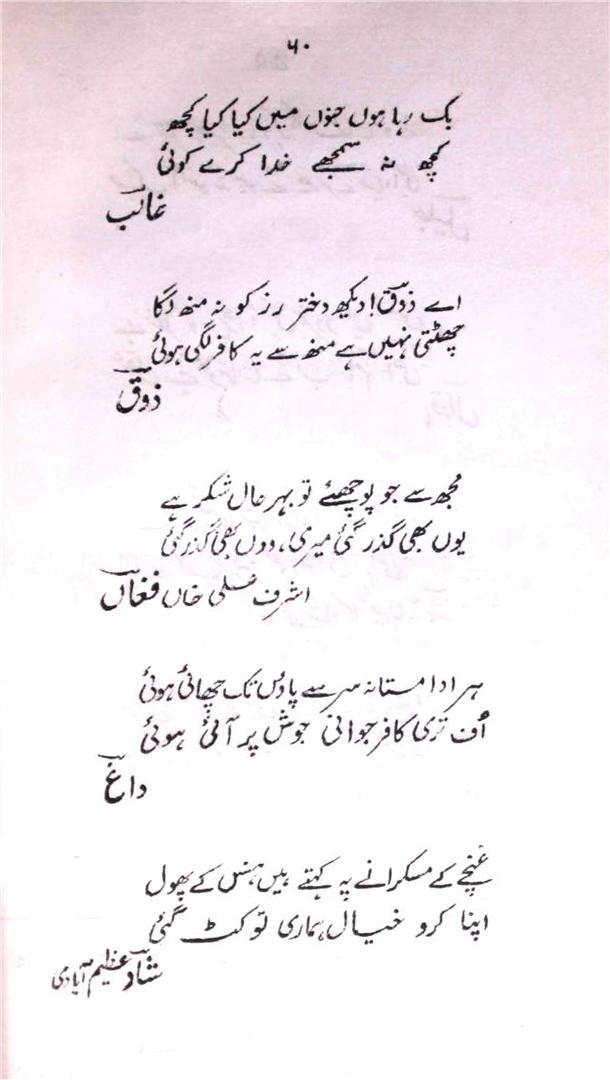 ۶۰
بک رہا ہوں جنوں میں کیا کیا کچھ
کچھ نہ سمجھے خدا کرے کوئی
غالب
اے ذوق! دیکھ دختر رز کو نہ منھ لگا
چھٹتی نہیں ہے منھ سے یہ کافر لگی ہوئی
ذوق
مجھ سے جو پوچھئے تو بہر حال شکر ہے
یوں بھی گذر گئی میری، ووں بھی گذر گئی
اشرف علی خاں فغاں
ہر ادا مستانہ سر سے پاؤں تک چھائی ہوئی
اُف تری کافر جوانی جوش پر آئی ہوئی
داغ
غنچے کے مسکرانے پہ کہتے ہیں ہنس کے پھول
اپنا کرو خیال ہماری تو کٹ گئی
شاد عظیم آبادی